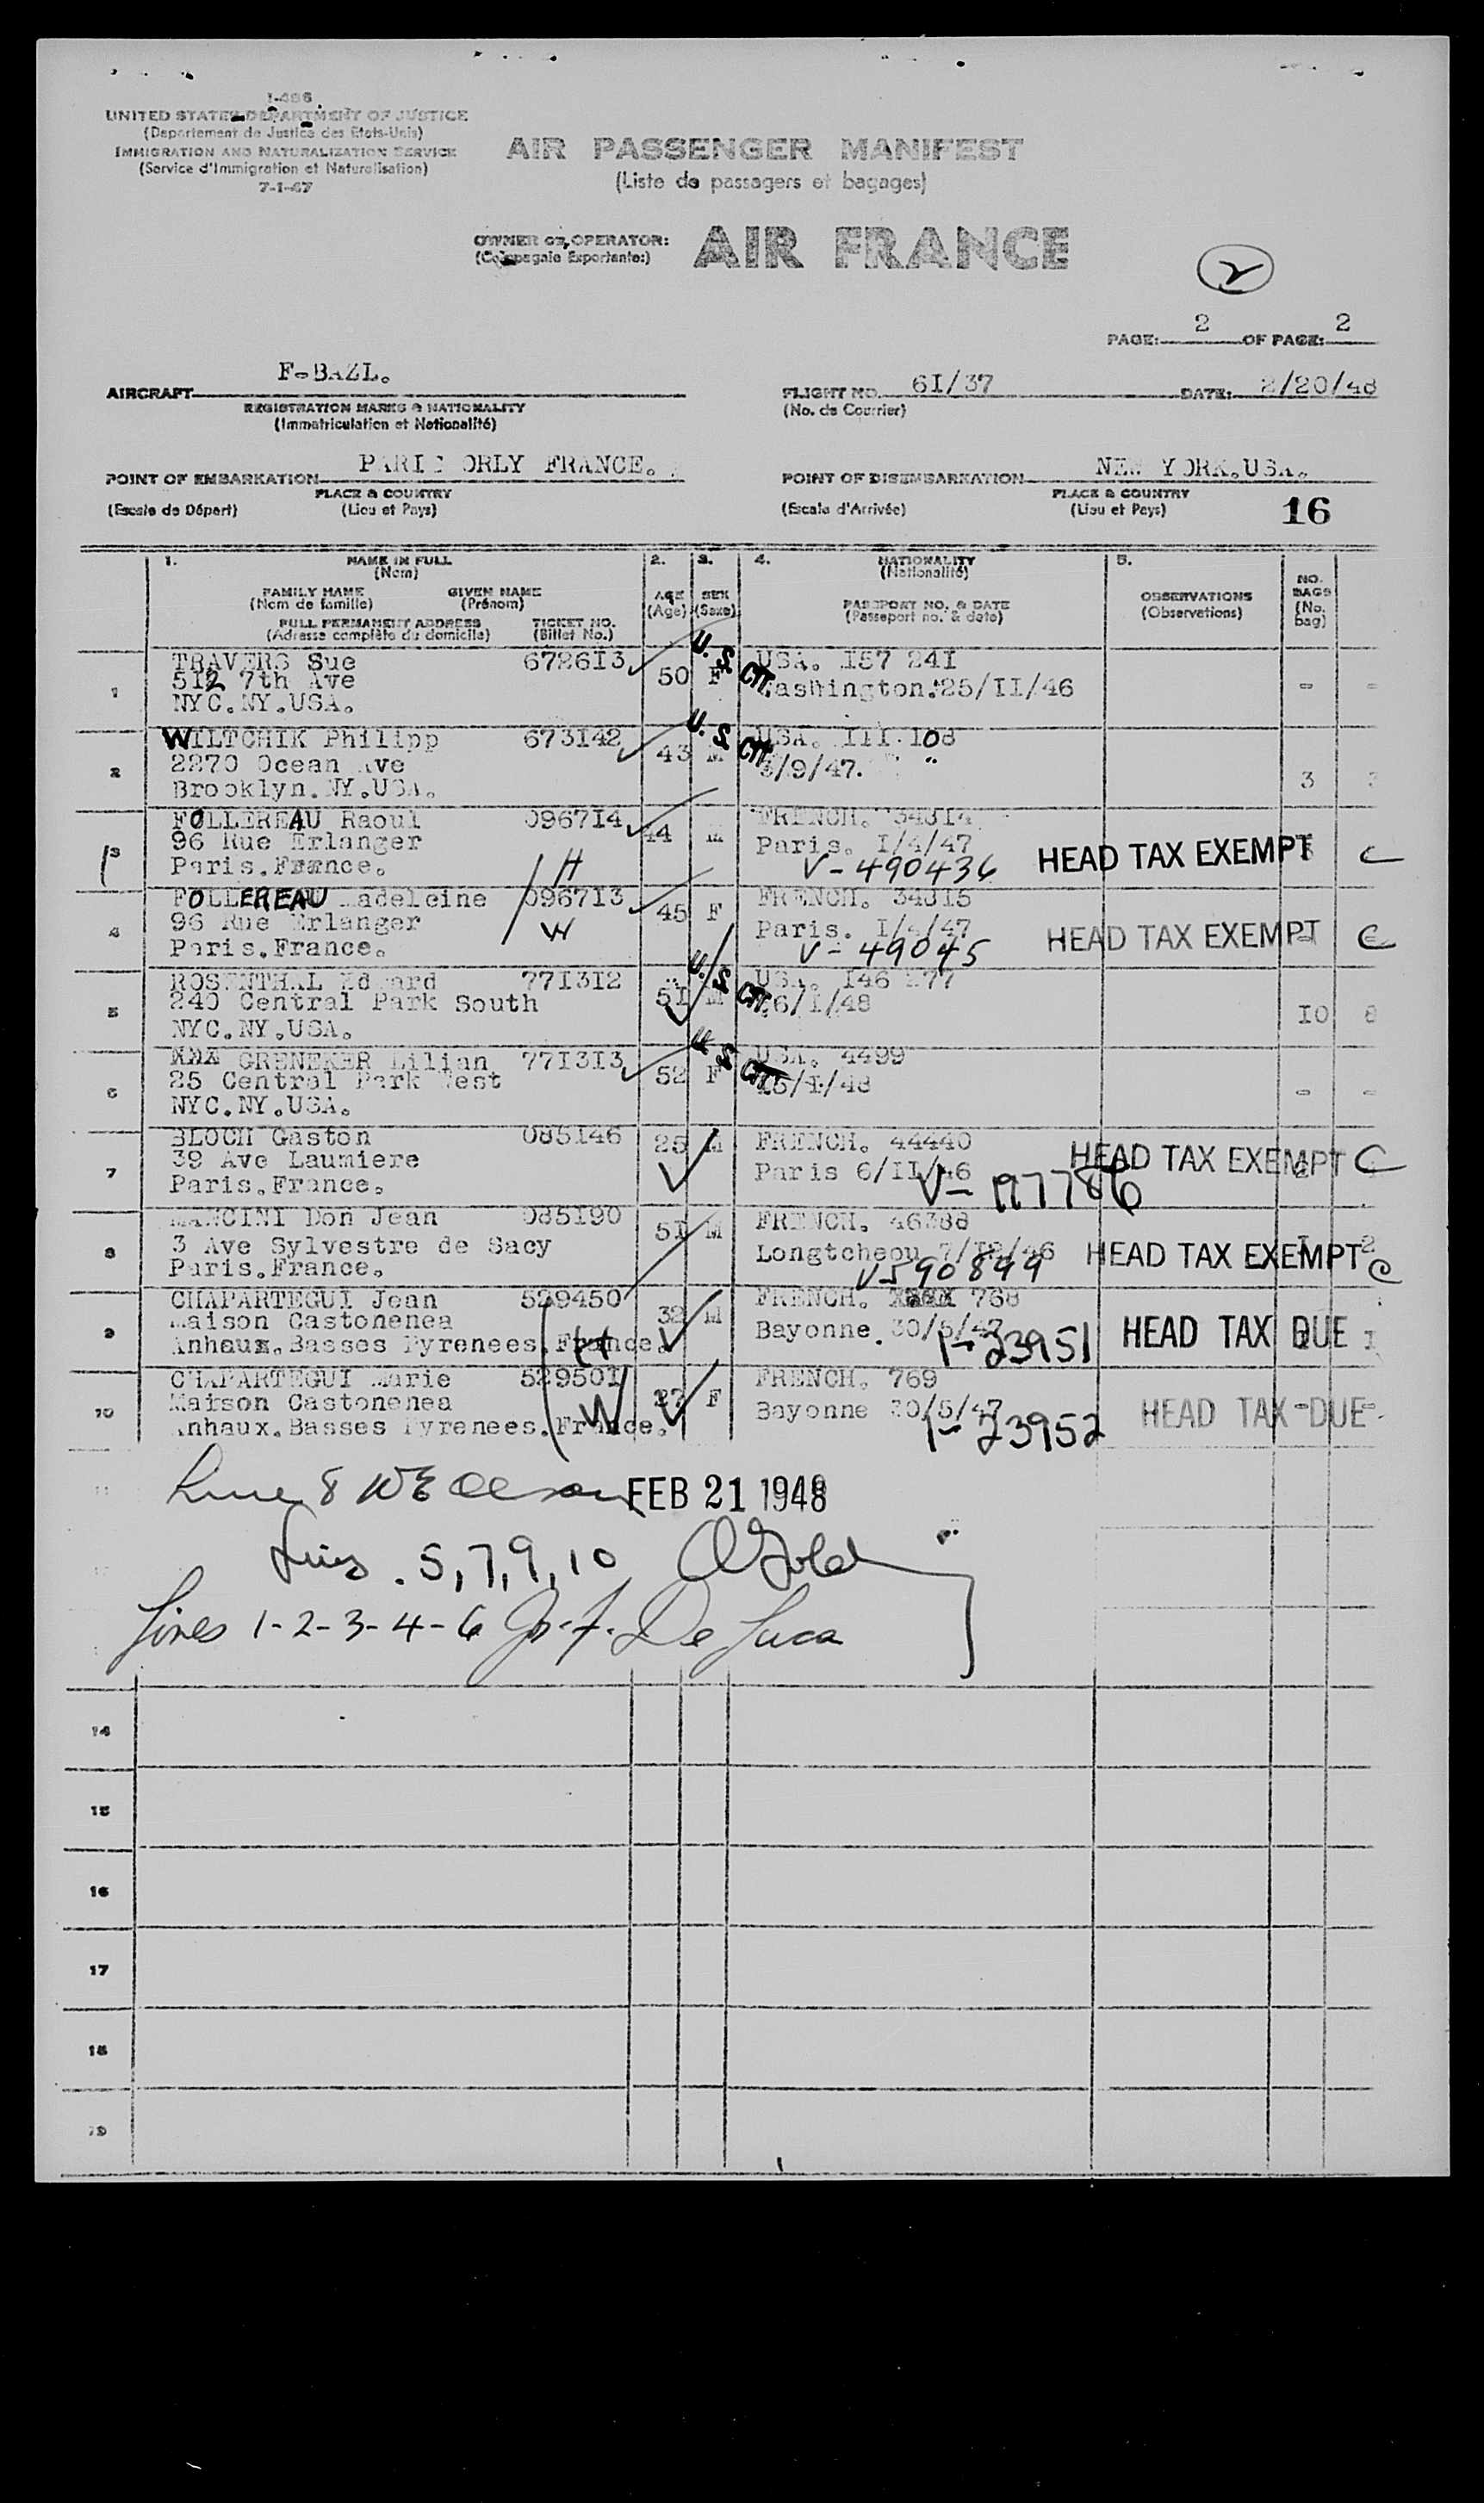 I-466
UNITED STATES DEPARTMENT OF JUSTICE
(Departement de Justice des Etats-Unis)
IMMIGRATION AND NATURALIZATION SERVICE
(Service d'Immigration et Naturalisation)
7-1-47
AIR PASSENGER MANIFEST
(Liste de passagers et bagages)
OWNER OR OPERATOR: AIR FRANCE
(Compagnie Exportante:)
2
PAGE: 2 OF PAGE: 2
AIRCRAFT F-BAZL.
REGISTRATION MARKS & NATIONALITY
(Immatriculation et Nationalité)
FLIGHT NO. 6I/37 DATE: 2/20/48
(No. de Courrier)
POINT OF EMBARKATION PARIS ORLY FRANCE.
PLACE & COUNTRY
(Escale de Départ) (Lieu et Pays)
POINT OF DISEMBARKATION NEW YORK.USA.
PLACE & COUNTRY
(Escale d'Arrivée) (Lieu et Pays) 16
1. NAME IN FULL 2. 3. 4. NATIONALITY 5.
(Nom) (Nationalité)
FAMILY NAME GIVEN NAME AGE SEX PASSPORT NO. & DATE OBSERVATIONS NO. BAGS
(Nom de famille) (Prénom) (Age) (Sexe) (Passeport no. & date) (Observations) (No. bag)
FULL PERMANENT ADDRESS TICKET NO.
(Adresse complète du domicile) (Billet No.)
1 TRAVERS Sue 6726I3 50 F U.S. CIT. USA. I57 24I
512 7th Ave Washington. 25/II/46
NYC.NY.USA. - -
2 WILTCHIK Philipp 673I42 43 M U.S. CIT. USA. III 108
2270 Ocean Ave /9/47.
Brooklyn.NY.USA. 3
3 FOLLEREAU Raoul 0967I4 44 M FRENCH. 343I4
96 Rue Erlanger Paris. I/4/47
Paris.France. H V-490436 HEAD TAX EXEMPT C
4 FOLLEREAU Madeleine 0967I3 45 F FRENCH. 343I5
96 Rue Erlanger Paris. I/4/47
Paris.France. W V-49045 HEAD TAX EXEMPT C
5 ROSENTHAL Edward 77I3I2 5I M U.S. CIT. USA. I46 277
240 Central Park South 6/I/48
NYC.NY.USA. I0 8
6 GRENEKER Lilian 77I3I3 52 F U.S. CIT. USA. 4499
25 Central Park West I5/I/48
NYC.NY.USA. - -
7 BLOCH Gaston 085I46 25 M FRENCH. 44440
39 Ave Laumiere Paris 6/II/46 HEAD TAX EXEMPT C
Paris.France. V-197786
8 MANCINI Don Jean 085I90 5I M FRENCH. 46388
3 Ave Sylvestre de Sacy Longtcheou HEAD TAX EXEMPT C
Paris.France. V-590899
9 CHAPARTEGUI Jean 529450 32 M FRENCH. XXXX 768
Maison Castonenea Bayonne. 30/5/47 HEAD TAX DUE
Anhaux.Basses Pyrenees.France. H I-23951
10 CHAPARTEGUI Marie 52950I 27 F FRENCH. 769
Maison Castonenea Bayonne 30/5/47 HEAD TAX DUE
Anhaux.Basses Pyrenees.France. W I-23952
11 Line 8 FEB 21 1948
Lines. 5,7,9,10
Lines 1-2-3-4-6 De Luca
14
15
16
17
18
19